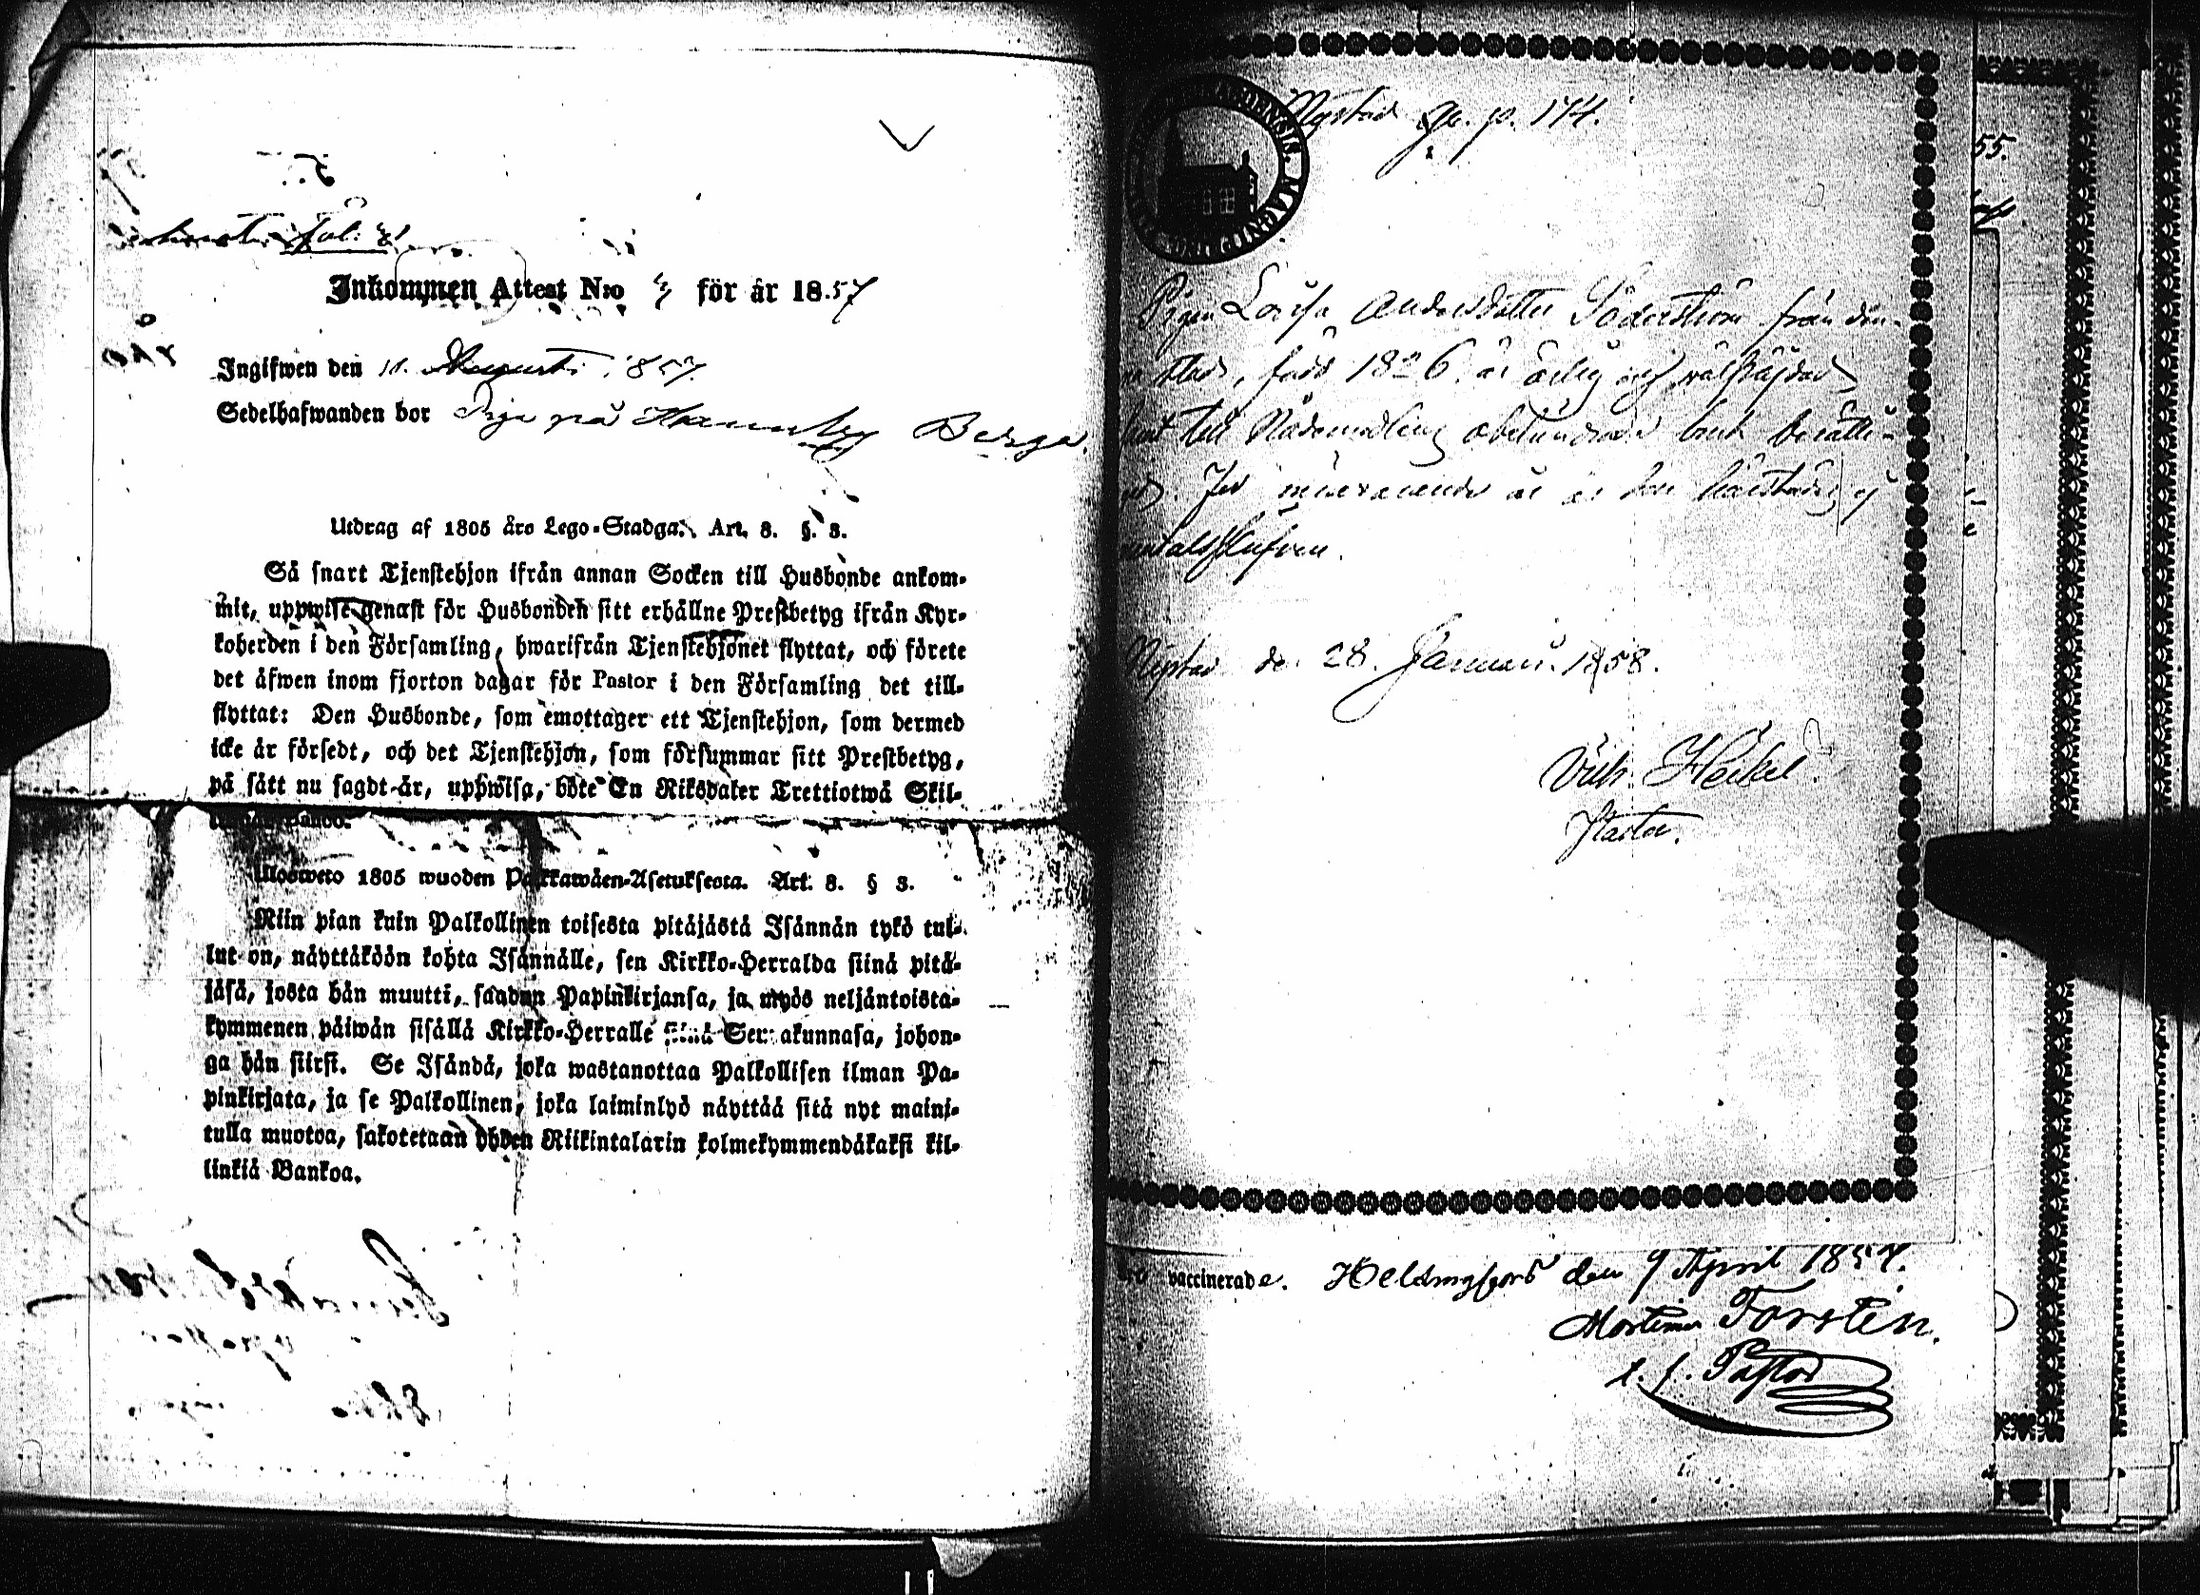 fol: 81
Inkommen Attest N:o för år 1857
Ingifwen den 11. Augusti 1857.
Sedelhafwanden bor Piga på Berga.
Utdrag af 1805 års Lego-Stadga. Art. 8. §. 3.
Så snart Tjenstehjon ifrån annan Socken till Husbonde ankom-
mit, uppwise genast för Husbonden sitt erhållne Prestbetyg ifrån Kyr-
koherden i den Församling, hwarifrån Tjenstehjonet flyttat, och förete
det äfwen inom fjorton dagar för Pastor i den Församling det till-
flyttat: Den Husbonde, som emottager ett Tjenstehjon, som dermed
icke är försedt, och det Tjenstehjon, som försummar sitt Prestbetyg,
på sätt nu sagdt är, uppwisa, böte En Riksdaler Trettiotwå Skil-
Banco.
Ulosweto 1805 wuoden Palkkawäen-Asetuksesta. Art. 8. § 3.
Niin pian kuin Palkollinen toisesta pitäjästä Isännän tykö tul-
lut on, näyttäköön kohta Isännälle, sen Kirkko-Herralda siinä pitä-
jäsä, josta hän muutti, saadun Papinkirjansa, ja myös neljäntoista-
kymmenen päiwän sisällä Kirkko-Herralle siinä Seurakunnasa, johon-
ga hän siirsi. Se Isändä, joka wastanottaa Palkollisen ilman Pa-
pinkirjata, ja se Palkollinen, joka laiminlyö näyttää sitä nyt maini-
tulla muotoa, sakotetaan yhden Riikintalarin kolmekymmendäkaksi kil-
linkiä Bankoa.
Nystad p. 174.
Pigan Lovisa Andersdotter Söderström från den-
na stad, född 1826. är ärlig och välfräjdad
samt till Nådemedlens obehindrade bruk berätti-
gad. För innevarande år är hon härstädes ej
mantalsskrifven.
Nystad den 28. Januari 1858.
Heikel
Pastor.
vaccinerade. Helsingfors den 9 April 1857.
Mortimer Forstén.
t. f. Pastor
55.